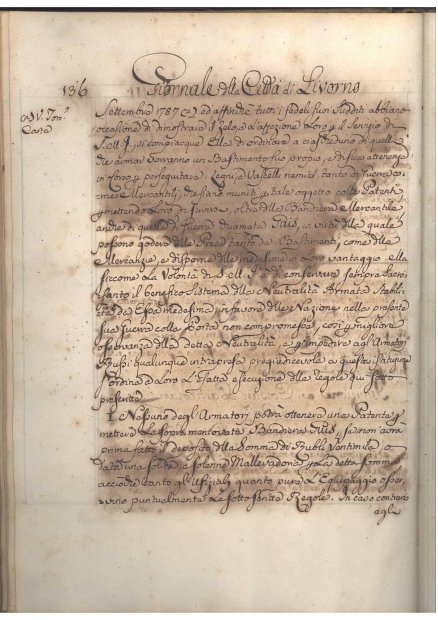 136 Giornale della Città di Livorno
Settembre 1787 (a) ed affinchè tutti i fedeli suoi Sudditi abbiano
(a) V. Tom.°
Carte
occasione di dimostrare il zelo, e l'affezione Loro il Servizio di
S. M. I., si compiacque Ella di ordinare a ciascheduno di quelle
che armar vorranno un Bastimento suo proprio, e di sua attenenza
in Corso perseguitare Legni, e Vascelli nemici, tanto di Guerra co
me Mercantili, che siano muniti tale oggetto colle Patenti
permettendo Loro di Inalberare, oltre della Bandiera Mercantile
anche di quella di Guerra chiamata in virtù della quale
possono godere delle Prede tanto de Bastimenti, come delle
Mercanzie, e disporne delle medesime in Loro vantaggio ella
siccome La Volontà di S. M. I. è di conservare sempre Sacro
Santo il benefico Sistema della Neutralità Armata Stabili
ta da Essa medesima in favore delle Nazione nella presente
sua Guerra colla Porta non compromesse, così migliore
osservanza della detta Neutralità e impedire agli Armatori
Russi qualunque intrapresa pregiudicevole a questa Istituzione
ordina a Loro L'esatta esecuzione delle regole qui sotto
presentte
I. Nessuno degli Armatori potrà ottenere una Patente
mettere La sopra mentovata Bandiera se non avrà
prima fatto il deposito della Somma di Rubli Ventimila, o
data una solida, e solenne Mallevadoria la detta Somma
acciochè tanto gli Uffiziali quanto pure L'Equipaggio osser
vino puntualmente Le sotto scritte Regole. In caso contrario
agli